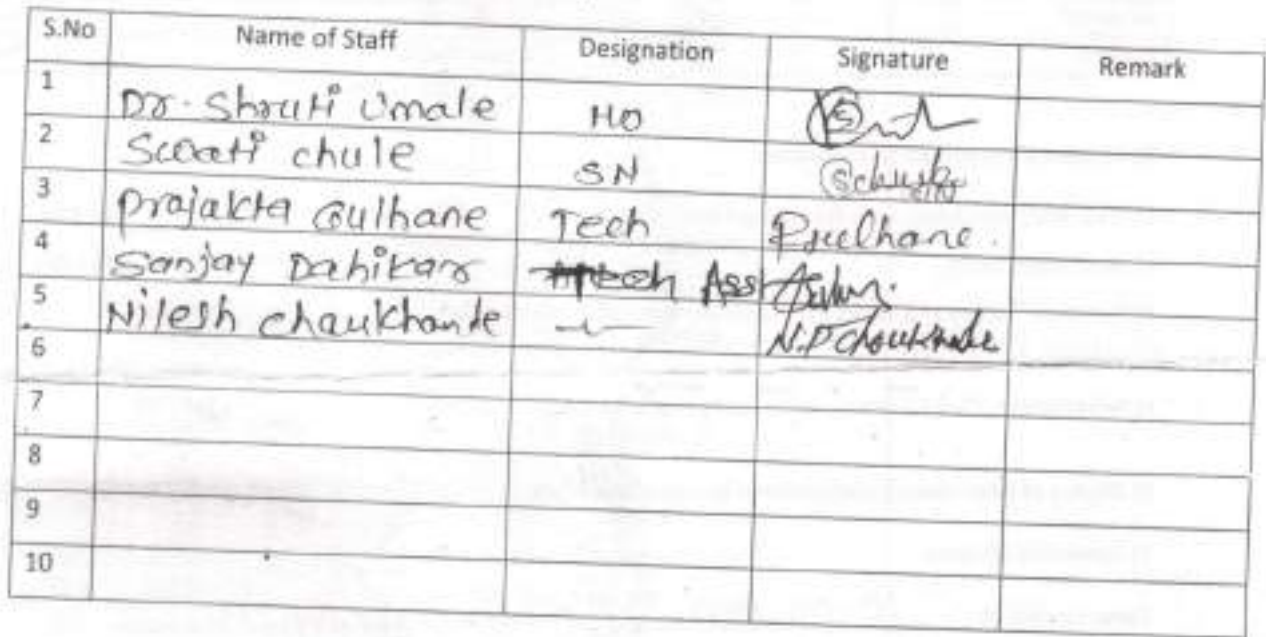 S.No Name of Staff Designation Signature Remark
1 Dr. Shruti Umale MO
2 Swati chule SN
3 Prajakta Gulhane Tech Pgulhane.
4 Sanjay Dahikar Asst
5 Nilesh Chaukhande -"- N.P Chaukhande
6
7
8
9
10